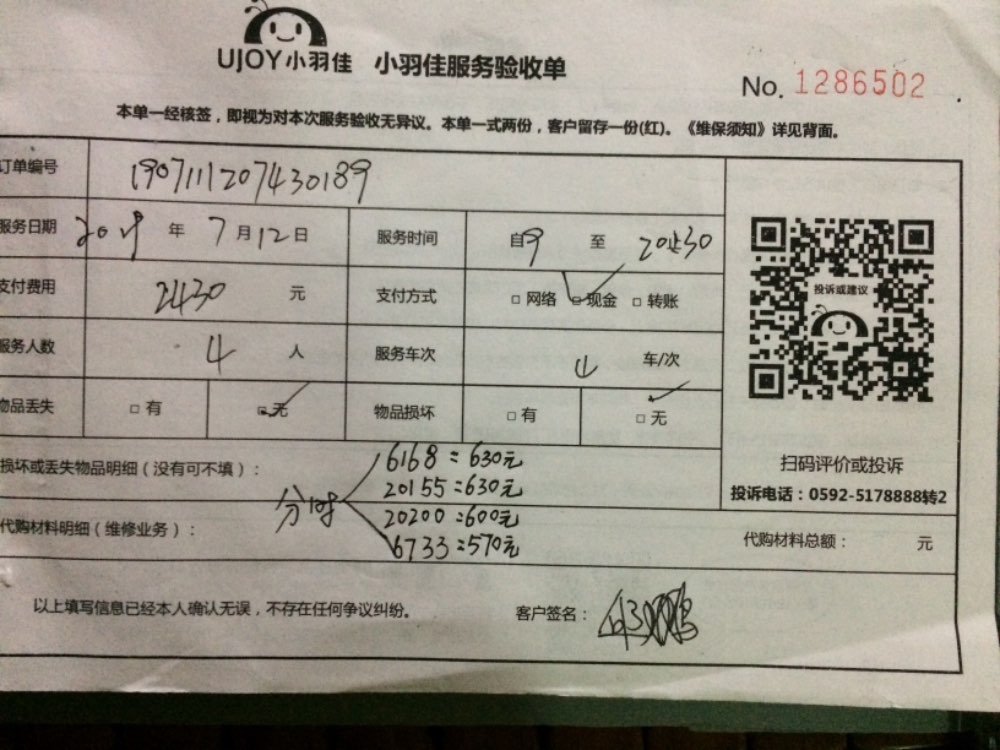 UJOY小羽佳 小羽佳服务验收单
No. 1286502
本单一经核签，即视为对本次服务验收无异议。本单一式两份，客户留存一份(红)。《维保须知》详见背面。
订单编号 190711120743 0189
服务日期 2019 年 7 月 12 日 服务时间 自 9 至 20:30
投诉或建议
支付费用 2430 元 支付方式 □ 网络 □ 现金 □ 转账
服务人数 4 人 服务车次 4 车/次
物品丢失 □ 有 □ 无 物品损坏 □ 有 □ 无
扫码评价或投诉
投诉电话：0592-5178888转2
损坏或丢失物品明细（没有可不填）：
6168 = 630元
20155 = 630元
20200 = 600元
6733 = 570元
代购材料明细（维修业务）： 代购材料总额： 元
以上填写信息已经本人确认无误，不存在任何争议纠纷。 客户签名：